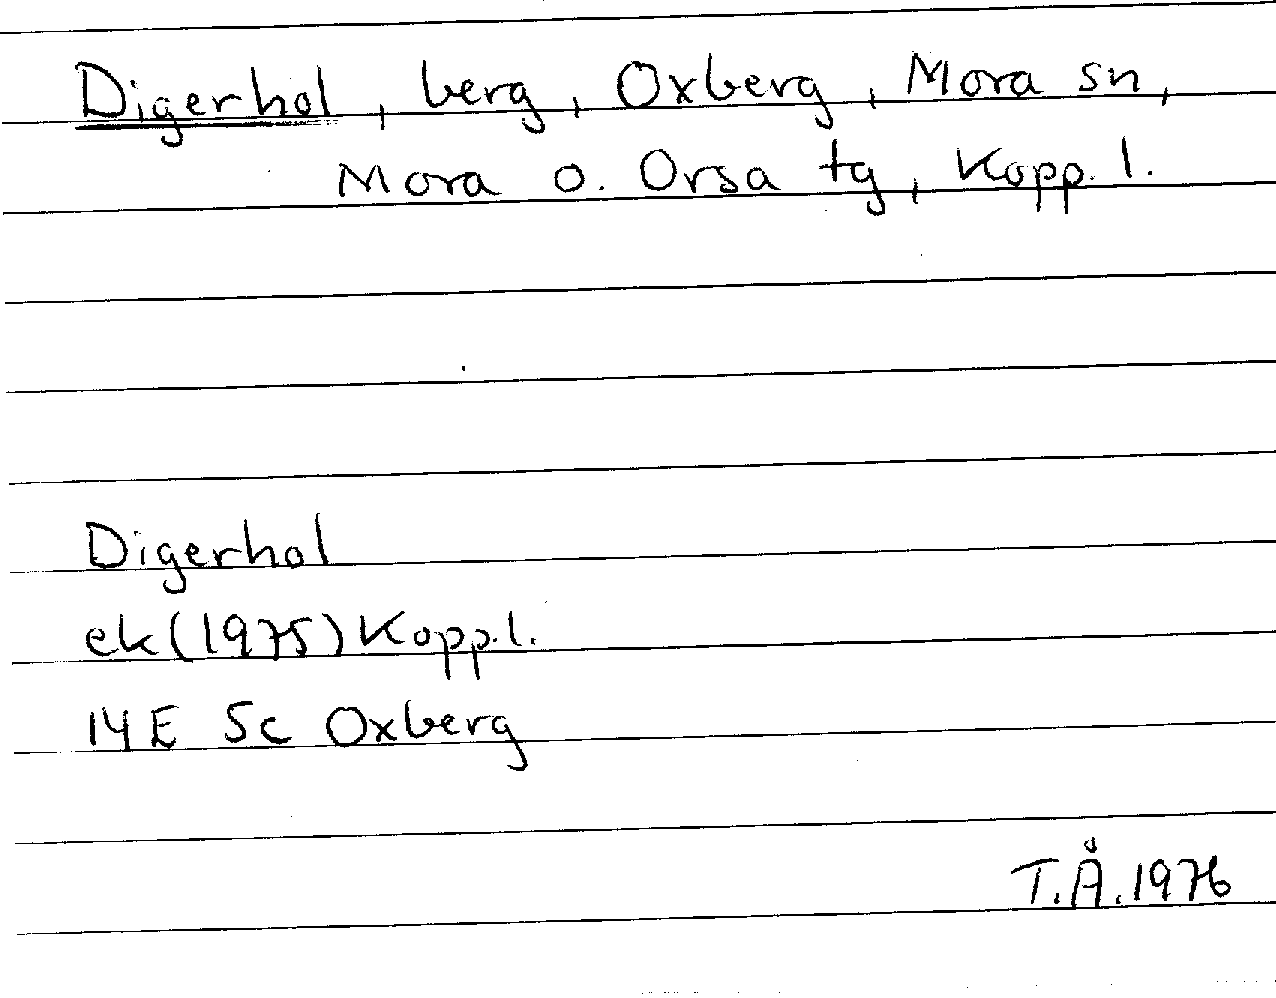 Digerhol, berg, Oxberg, Mora sn,
Mora o. Orsa tg, Kopp. l.
Digerhol
ek (1975) Kopp.l.
14E 5c Oxberg
T.Å. 1976